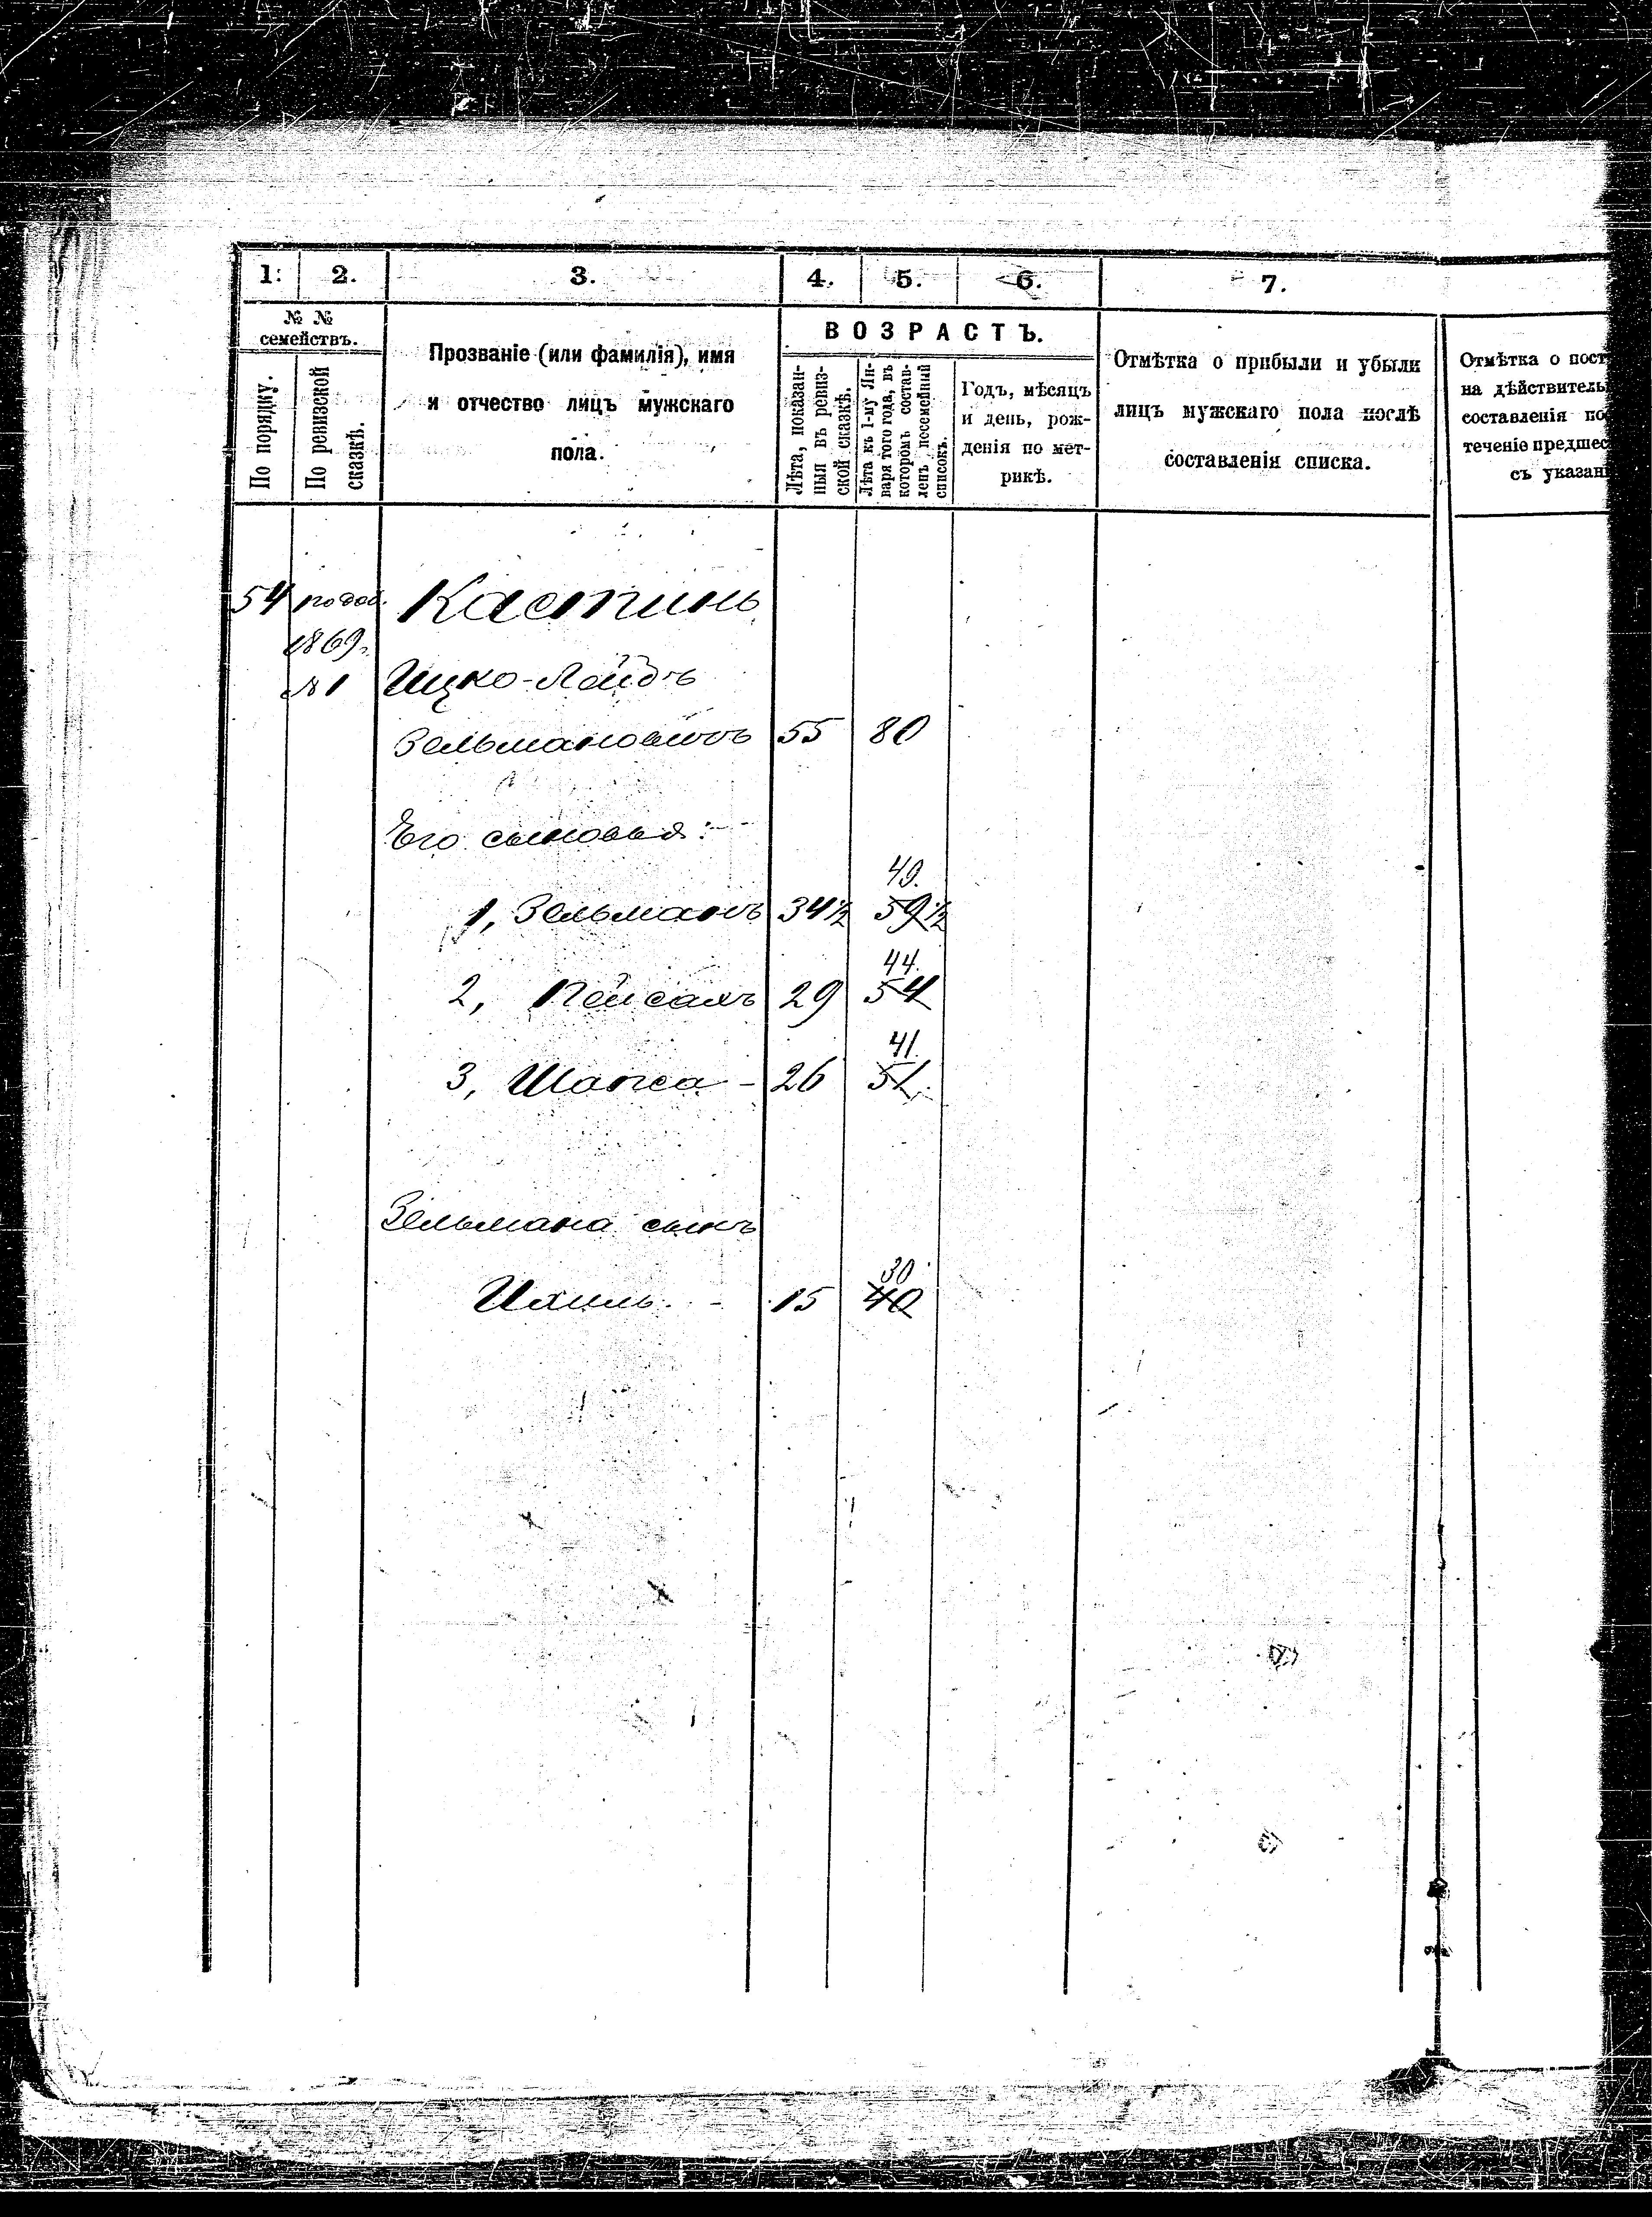 1. 2. 3. 4. 5. 6. 7.
№ №
семействъ.
По порядку.
По ревизской
сказкѣ.
Прозваніе (или фамилія), имя
и отчество лицъ мужскаго
пола.
ВОЗРАСТЪ.
Лѣта, показан-
ныя въ ревиз-
ской сказкѣ.
Лѣта къ 1-му Ян-
варя того года, въ
которомъ состав-
ленъ посемейный
списокъ.
Годъ, мѣсяцъ
и день, рож-
денія по мет-
рикѣ.
Отмѣтка о прибыли и убыли
лицъ мужскаго пола послѣ
составленія списка.
Отмѣтка о пост
на дѣйствитель
составленія по
теченіе предшес
съ указан
54 по доп. Кастинъ
1869.
№ 1 Ицко-Лейбъ
Зельмановичъ 55 80
Его сыновья:
49.
1, Зельманъ 34½ 59½
44.
2, Пейсахъ 29 54
41.
3, Шапса - 26 51.
Зельмана сынъ
30
Ихиль. - 15 40